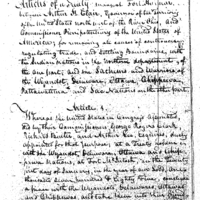 Articles of a Treaty made at Fort Harmar,
between Arthur St. Clair, Governor of the territory
of the United States north west of the River Ohio, and
Commissioner Plenipotentiary of the United States of
America, for removing all causes of controversy,
regulating trade, and settling boundaries, with
the Indian nations in the northern department, of
the one part; and the Sachems and Warriors of
the Wiandot, Delaware, Ottawa, Chippewa,
Pattawatima and Sac Nations, on the other part.
Article 1.
Whereas the United States in Congress Assembled,
did by their Commissioners George Rogers Clark,
Richard Butler, and Arthur Lee, Esquires, duly
appointed for that purpose, at a treaty holden
with the Wiandot, Delaware, Ottawa and Chip-
pewa Nations, at Fort McIntosh, on the twenty
first day of January, in the year of our Lord, One
thousand seven hundred & Eighty five, conclude
a peace with the Wyandots, Delawares, Ottawas
and Chippewas, and take them into their